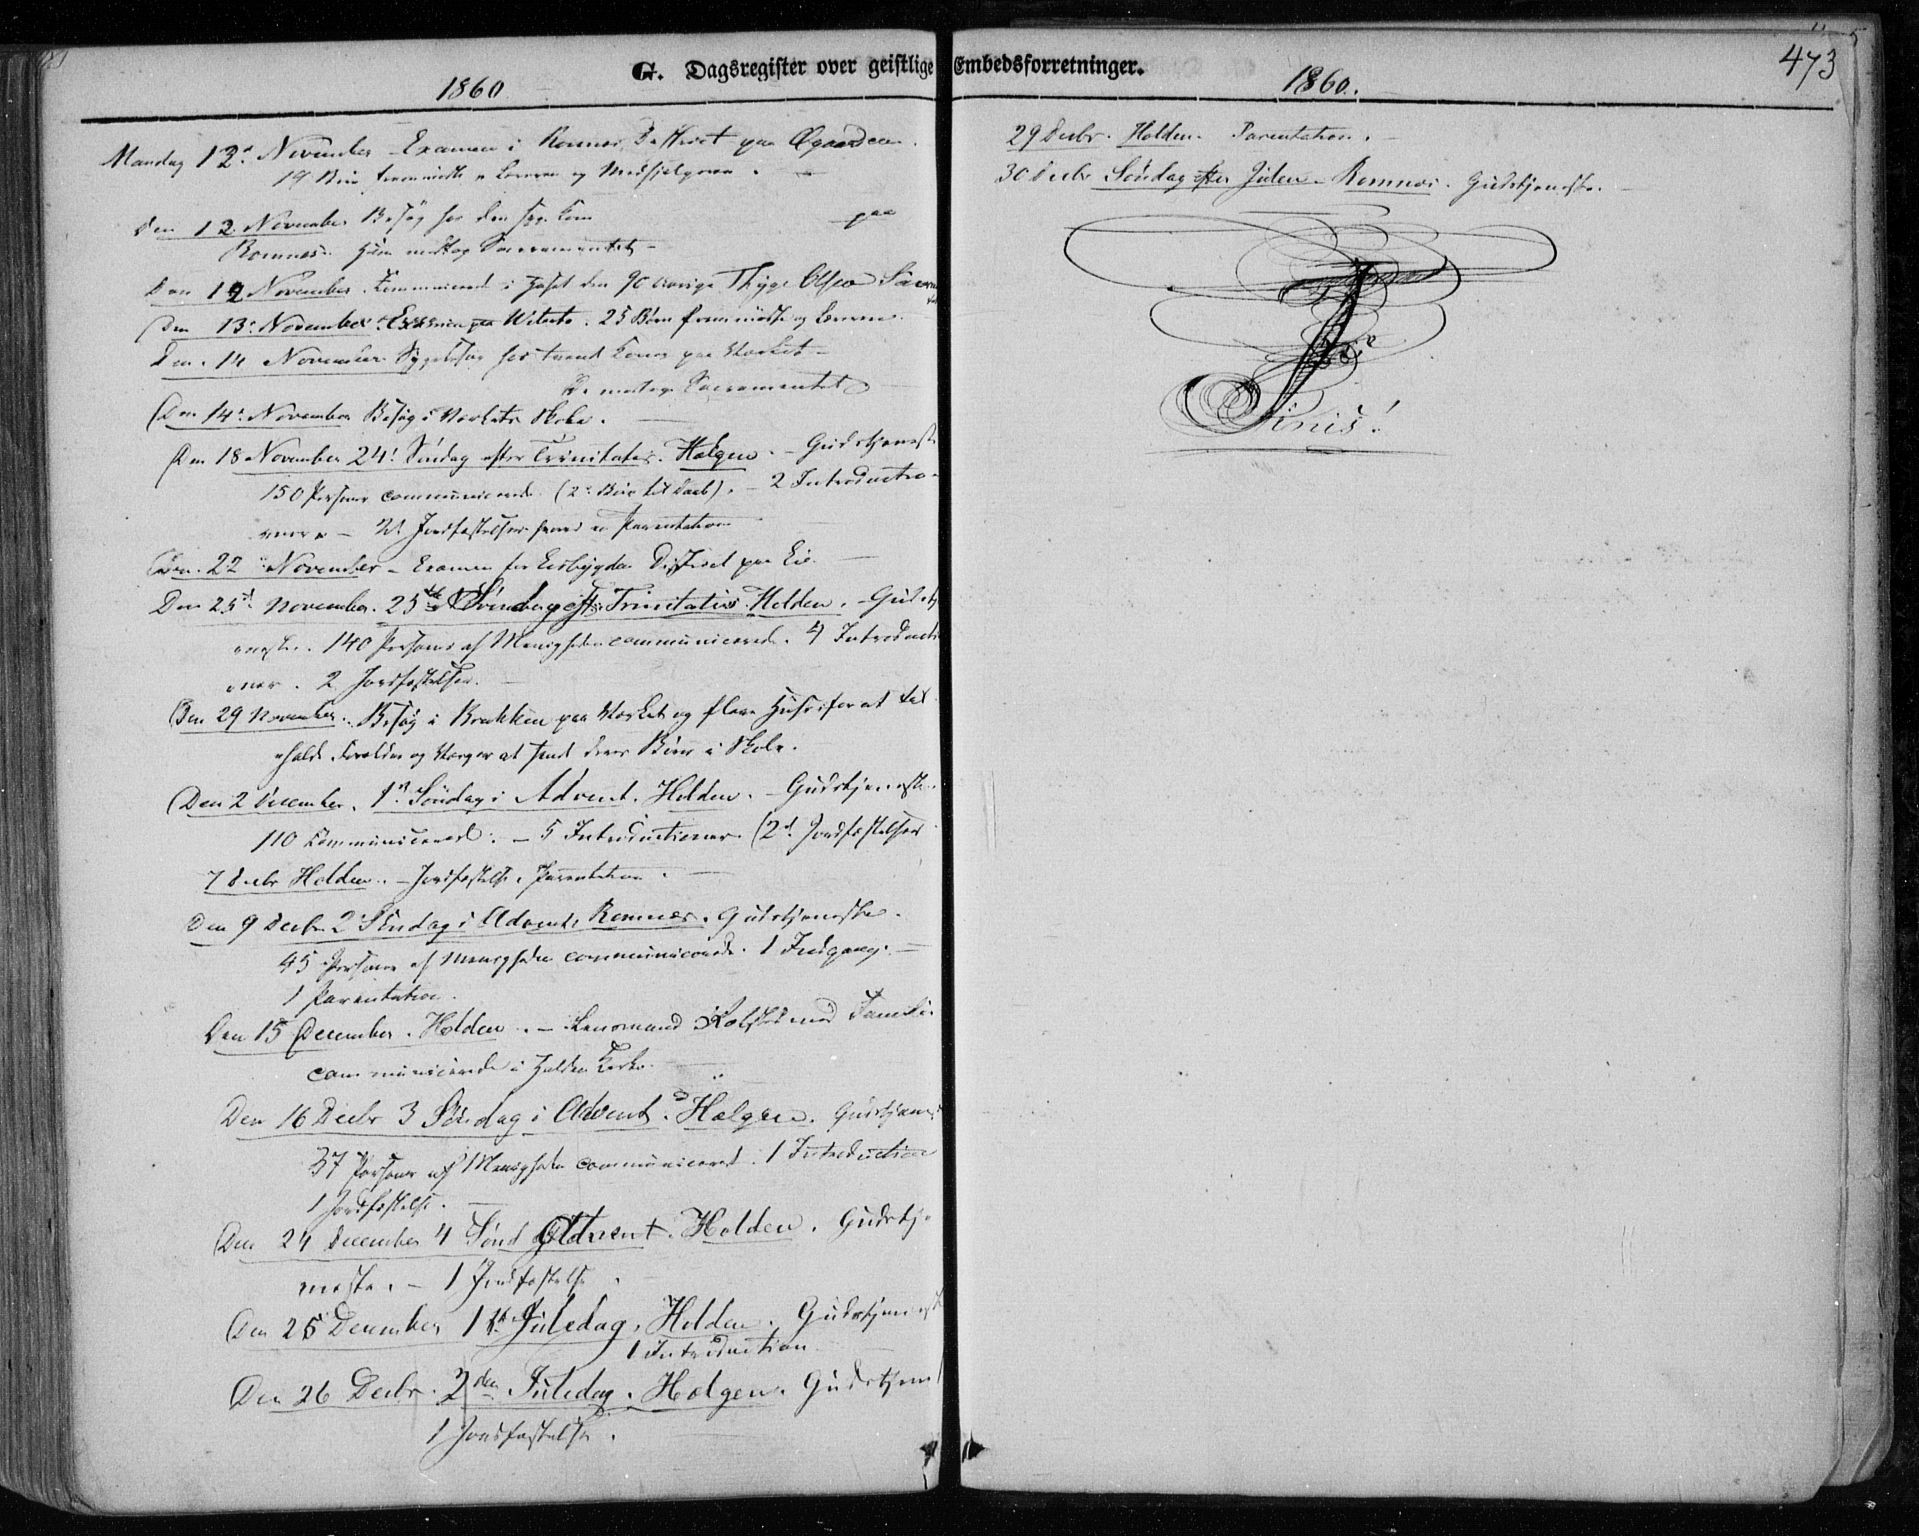 G. Dagsregister over geistlige Embedsforretninger.
473
1860
1860.
Mandag 12te November - Examen i Romnes District paa Øgaarden.
19 Børn fremmødte Læreren og Medhjelperen.
Den 12 November Besøg hos den syge Kone paa
Romnes. Hun modtog Sacramentet -
Den 12 November. Communicerede i Huset den 90 aarige Thyge Olsen
Den 13. November. Examen paa 25 Børn fremmødte og Læreren.
Den 14 November Sygebesøg hos tvende Koner paa Værket -
De modtoge Sacramentet
Den 14. November Besøg i Værkets Skole.
Den 18 November 24. Søndag efter Trinitatis. Helgen. - Gudstjeneste
150 Personer communicerede. (2 Børn til Daab). - 2 Introductio-
ner - Jordfæstelser Parentation
Den 22 November - Examen for District paa Eie.
Den 25de November. 25de Søndag eft. Trinitatis. Holden. - Gudstj
eneste. 140 Personer af Menigheden communicerede. 4 Introducti
oner. 2 Jordfæstelser.
Den 29 November. Besøg i Brækken paa Værket og flere Huse for at til-
holde Forældre og Værger at sende deres Børn i Skole.
Den 2 December. 1ste Søndag i Advent. Holden. - Gudstjeneste.
110 communicerede. - 5 Introductioner. (2de Jordfæstelser
7 Decbr Holden. - Jordfæstelse. Parentation.
Den 9 Decbr 2 Søndag i Advent. Romnes. Gudstjeneste.
45 Personer af Menigheden communicerede. 1 Indgang. -
1 Parentation.
Den 15 December. Holden. - Lensmand Rolfsted med Familie
communicerede i Holden Kirke.
Den 16 Decbr 3 Søndag i Advent. Helgen. Gudstjenes
37 Personer af Menigheden communicerede. 1 Introduction
1 Jordfæstelse.
Den 24 December 4 Sønd Advent. Holden. Gudstj-
eneste. - 1 Jordfæstelse.
Den 25 December 1ste Juledag. Holden. Gudstjenest
1 Introduction
Den 26 Decbr. 2den Juledag. Helgen. Gudstjen
1 Jordfæstelse.
29 Decbr. Holden. Parentation. -
30 Decbr Søndag efter Julen - Romnes. Gudstjeneste. -
Finis!